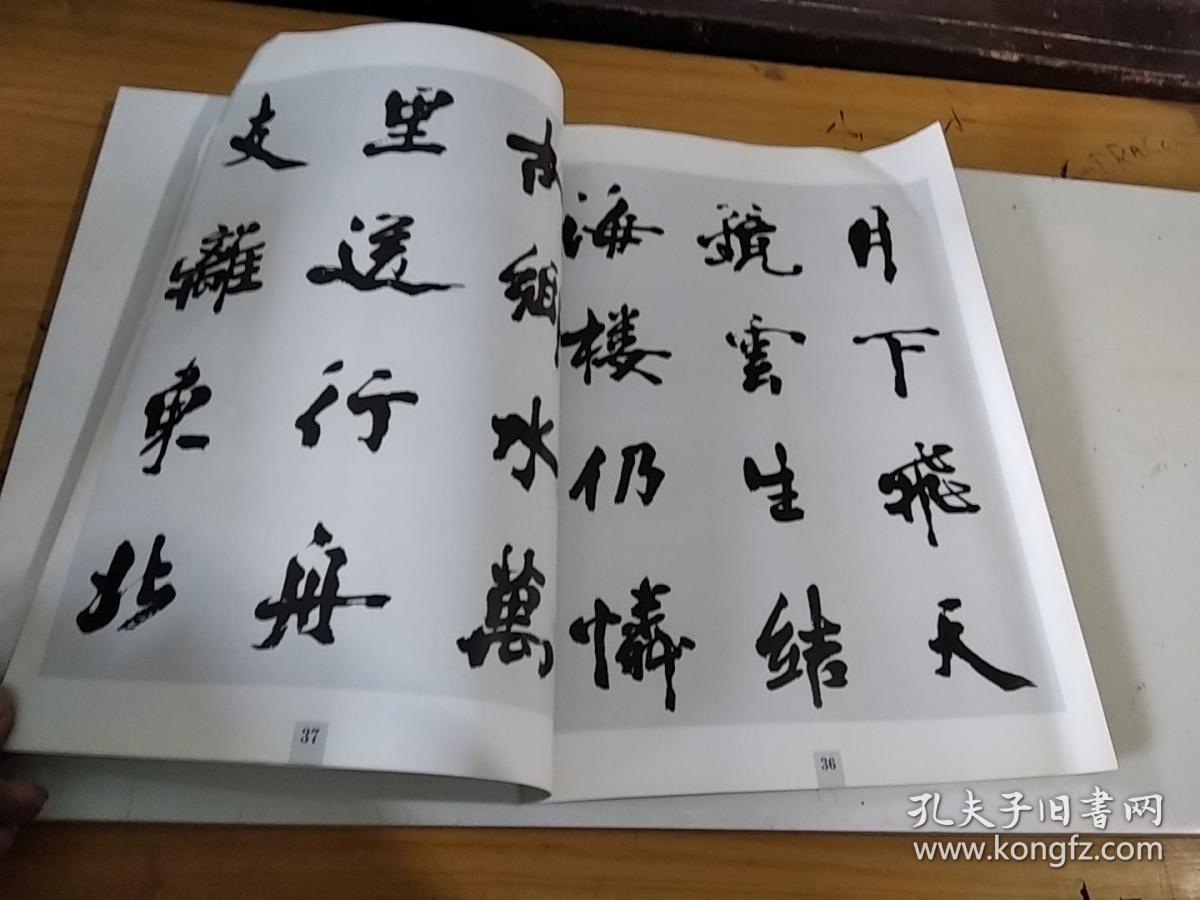 月下飛天
鏡雲生結
海楼仍憐
36
故鄉水萬
里送行舟
支離東北
37
孔夫子旧書网
www.kongfz.com